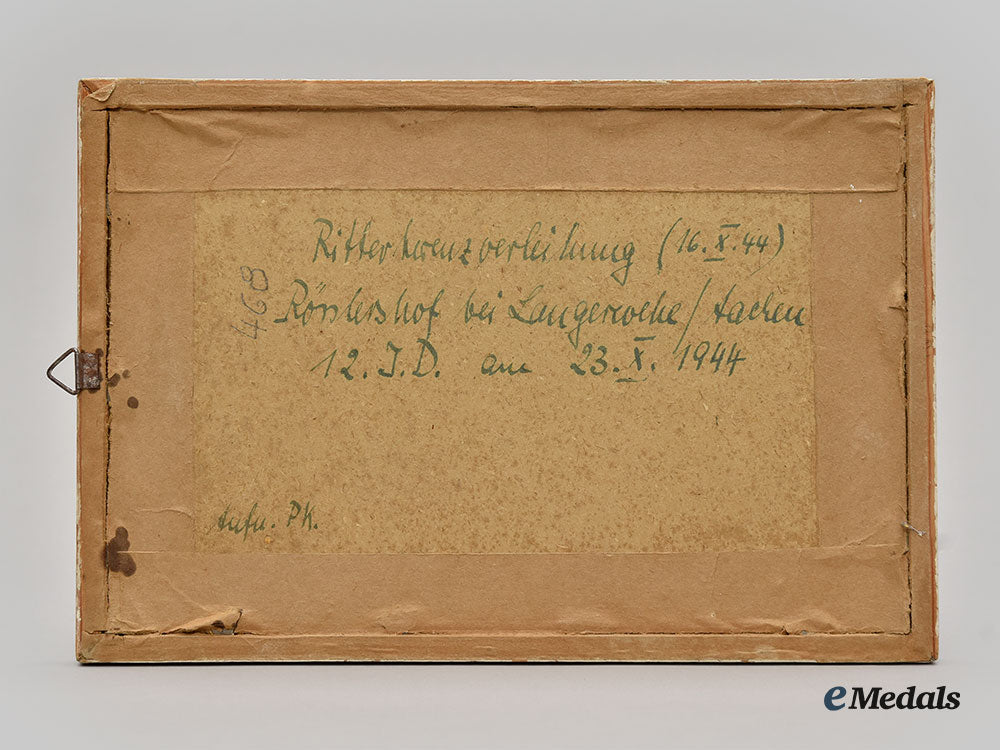 Ritterkreuzverleihung (16.X.44)
468
Rösslershof bei Langerwehe/Aachen
12. I.D. am 23.X. 1944
Aufn. PK.
eMedals